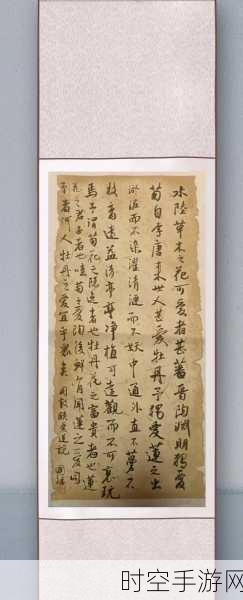 水陸草木之花可愛者甚蕃晉陶淵明獨愛
菊自李唐來世人甚愛牡丹予獨愛蓮之出
淤泥而不染濯清漣而不妖中通外直不蔓不
枝香遠益清亭亭淨植可遠觀而不可褻玩
焉予謂菊花之隱逸者也牡丹花之富貴者也蓮
花之君子者也噫菊之愛陶後鮮有聞蓮之愛同
予者何人牡丹之愛宜乎眾矣 周敦頤愛蓮說
时空手游网